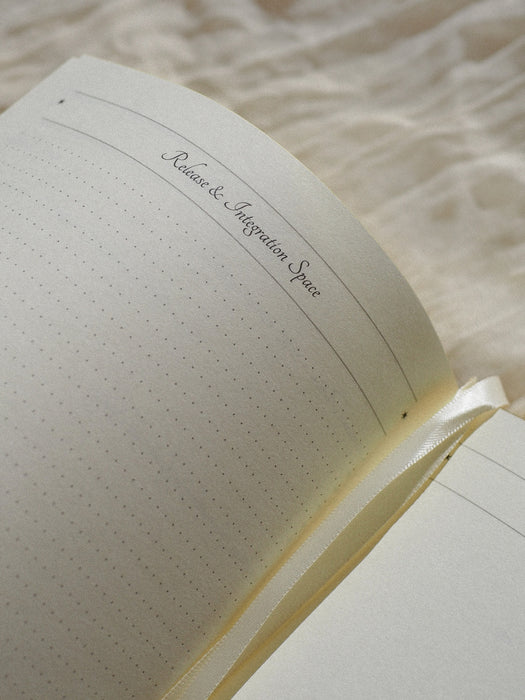 Release & Integration Space